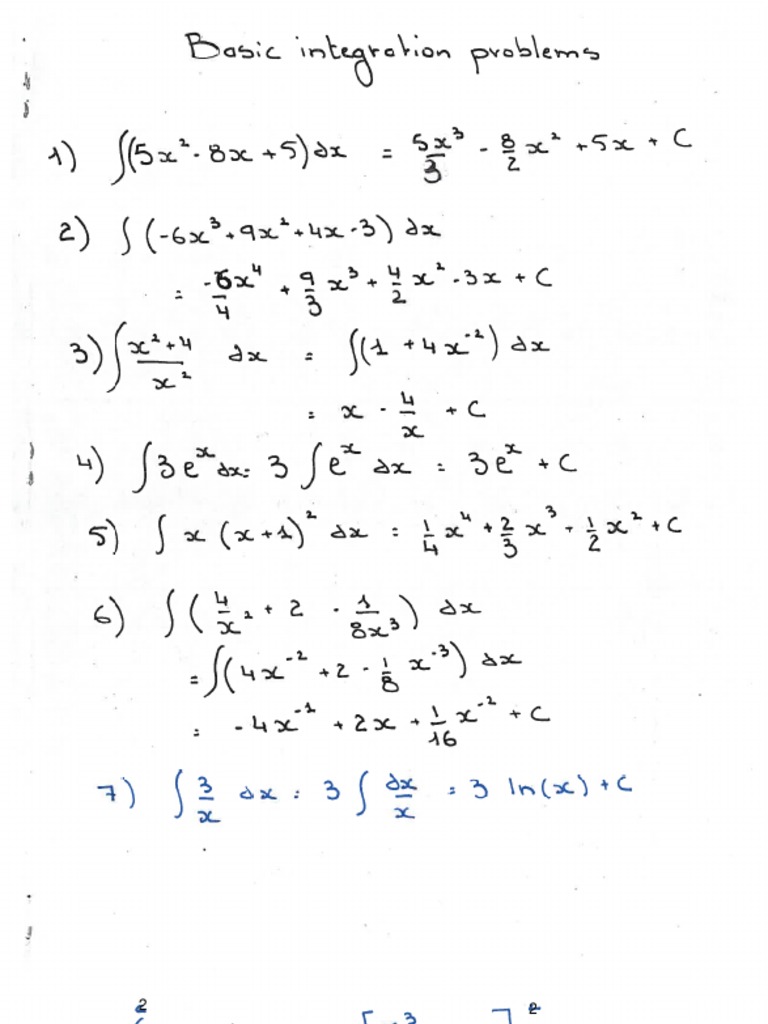 Basic integration problems
1) ∫(5x² - 8x + 5) dx = 5x³/3 - 8/2 x² + 5x + C
2) ∫ (-6x³ + 9x² + 4x - 3) dx
= -6x⁴/4 + 9/3 x³ + 4/2 x² - 3x + C
3) ∫ (x² + 4)/x² dx = ∫(1 + 4x⁻²) dx
= x - 4/x + C
4) ∫3eˣ dx = 3 ∫eˣ dx = 3eˣ + C
5) ∫ x (x+1)² dx = 1/4 x⁴ + 2/3 x³ + 1/2 x² + C
6) ∫ (4/x² + 2 - 1/8x³) dx
= ∫(4x⁻² + 2 - 1/8 x⁻³) dx
= -4x⁻¹ + 2x + 1/16 x⁻² + C
7) ∫ 3/x dx = 3 ∫ dx/x = 3 ln(x) + C